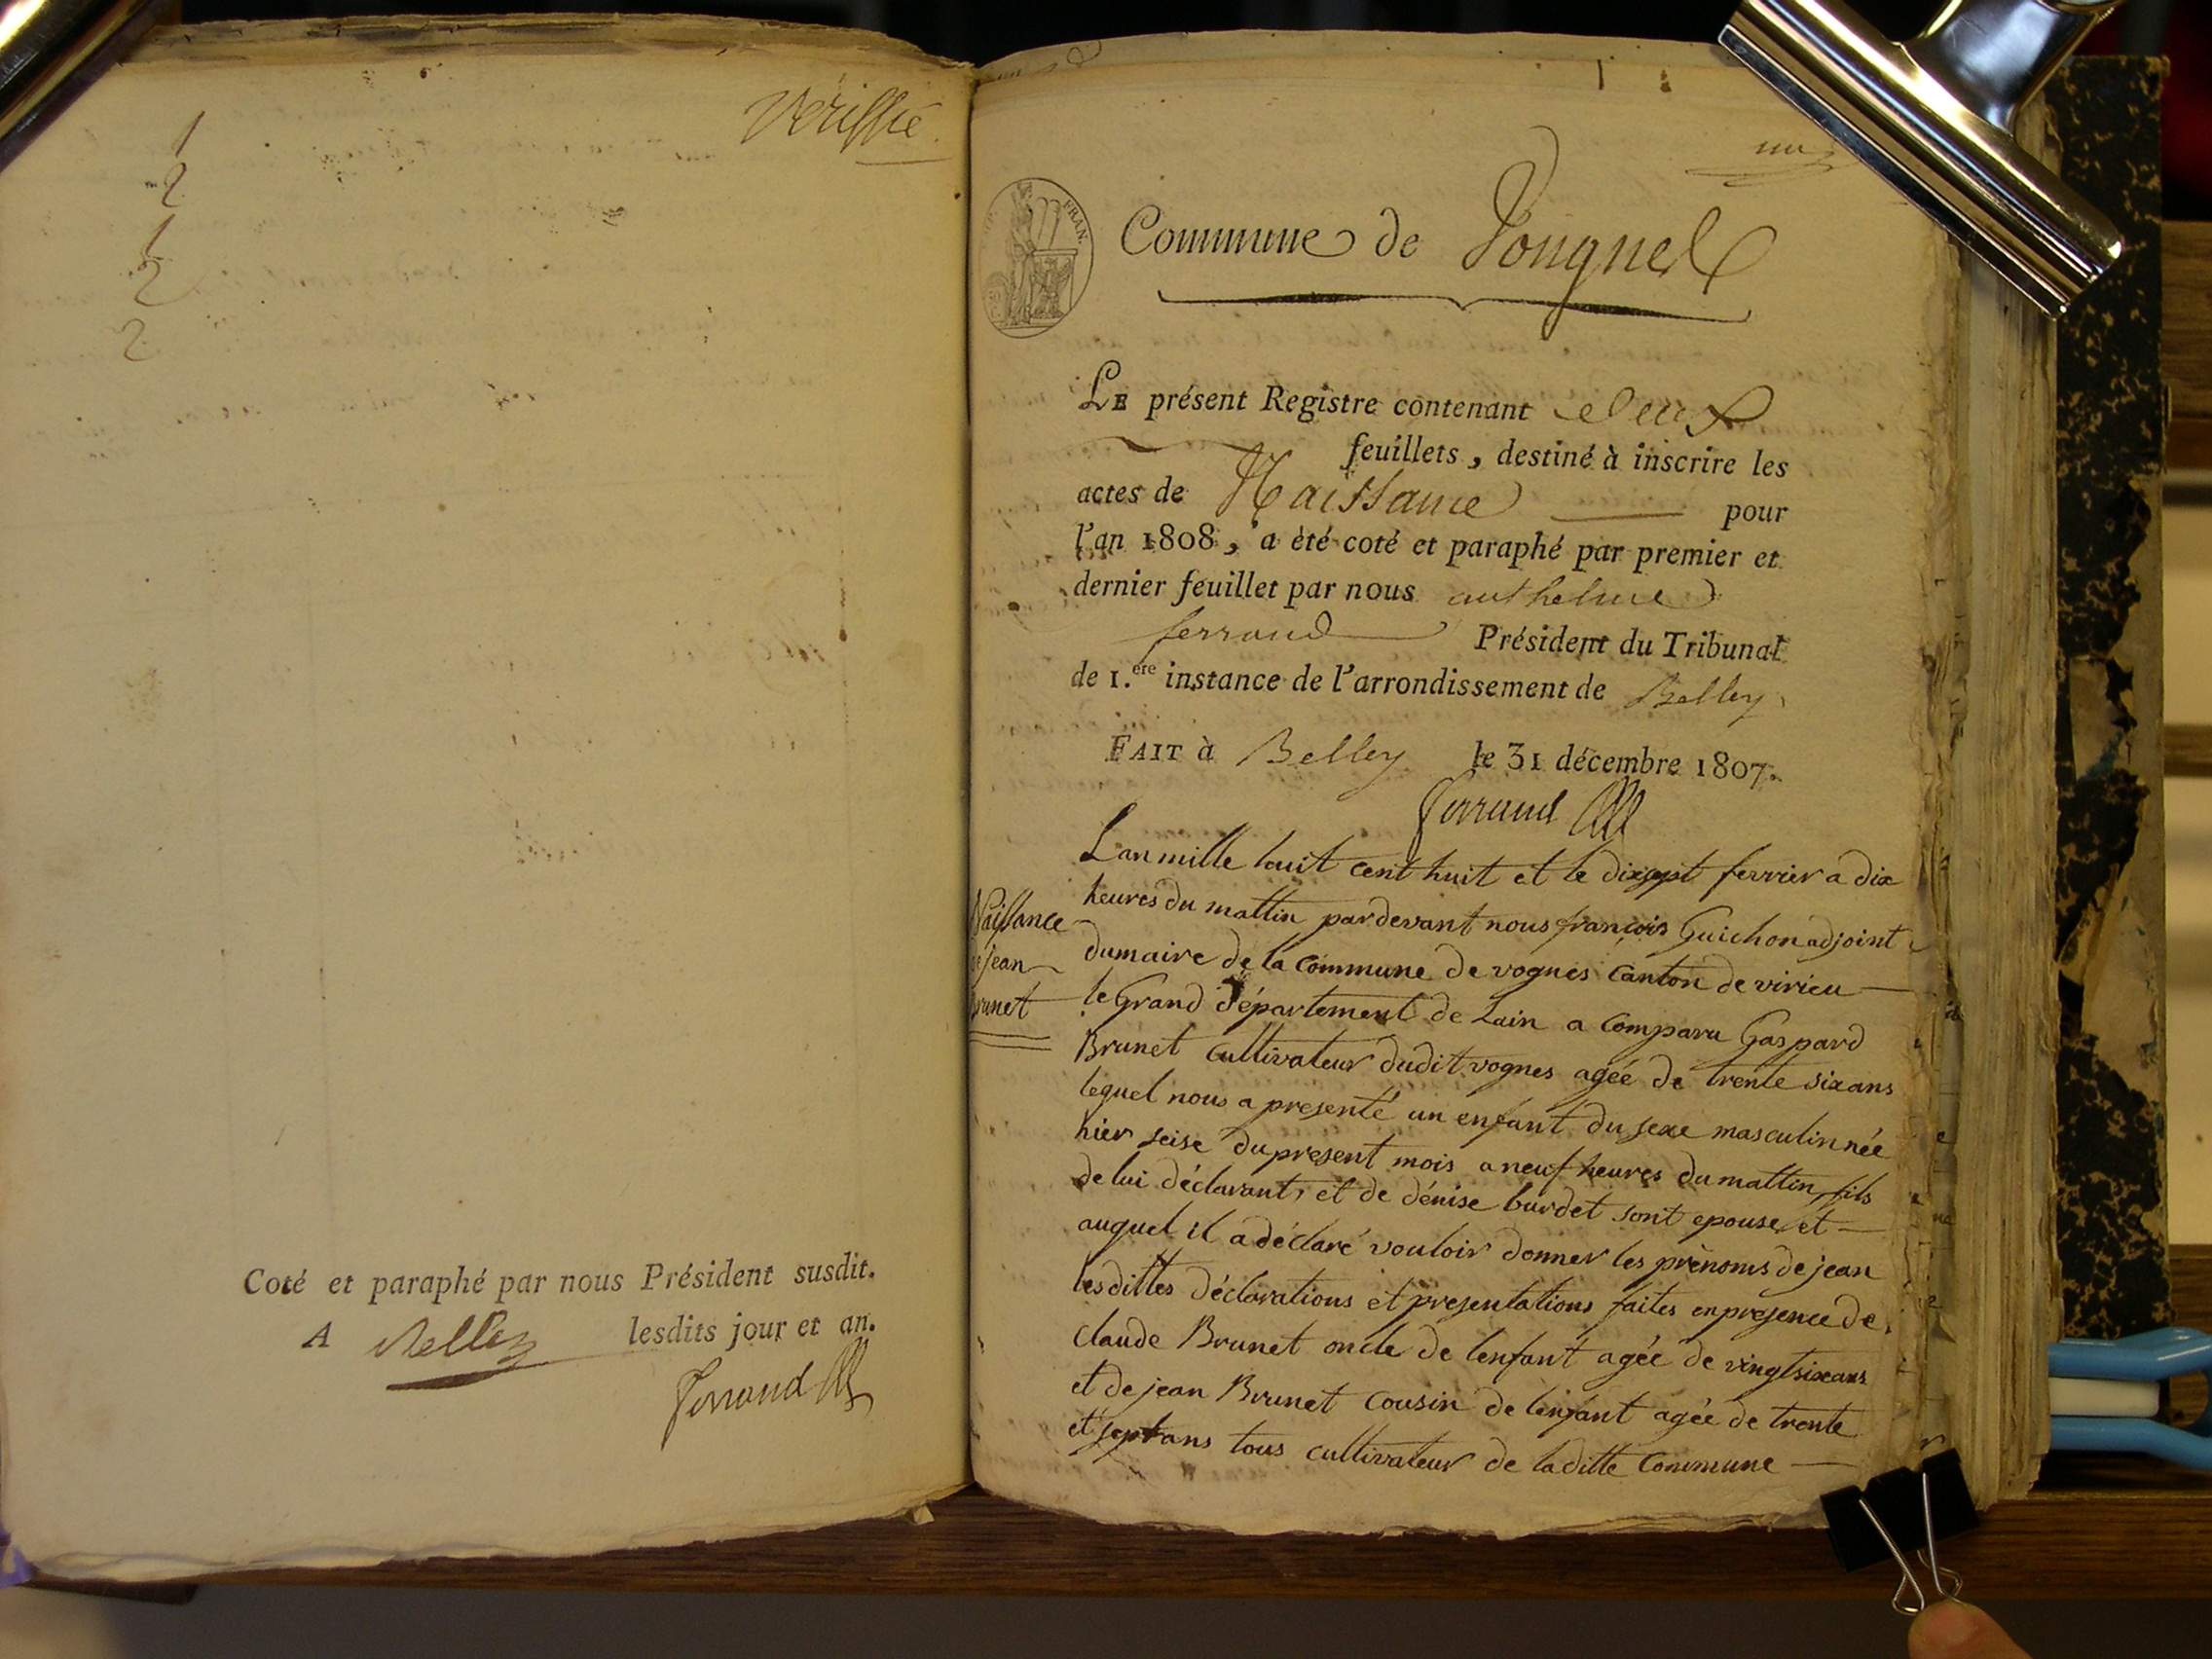 Vériffié
1
2
1
2
2
Coté et paraphé par nous Président susdit.
A Belley lesdits jour et an.
Ferrand
un
FRAN.
Commune de Vongnes
LE présent Registre contenant deux
feuillets, destiné à inscrire les
actes de Naissance pour
l'an 1808, a été coté et paraphé par premier et
dernier feuillet par nous anthelme
ferrand Président du Tribunal
de 1.ere instance de l'arrondissement de Belley
FAIT à Belley le 31 décembre 1807.
Ferrand
Naissance
de jean
Brunet
L an mille huit cent huit et le dixsept fevrier a dix
heures du mattin pardevant nous françois Guichon adjoint
du maire de la Commune de vognes Canton de virieu
le Grand département de Lain a comparu Gaspard
Brunet cultivateur dudit vognes agée de trente six ans
lequel nous a presenté un enfant du sexe masculin née
hier seise du present mois a neuf heures du mattin fils
de lui déclarant, et de dénise burdet sont epouse et
auquel il a déclaré vouloir donner les prénoms de jean
lesdittes déclarations et presentations faites en presence de
Claude Brunet oncle de lenfant agée de vingt six ans
et de jean Brunet cousin de lenfant agée de trente
et sept ans tous cultivateur de laditte Commune